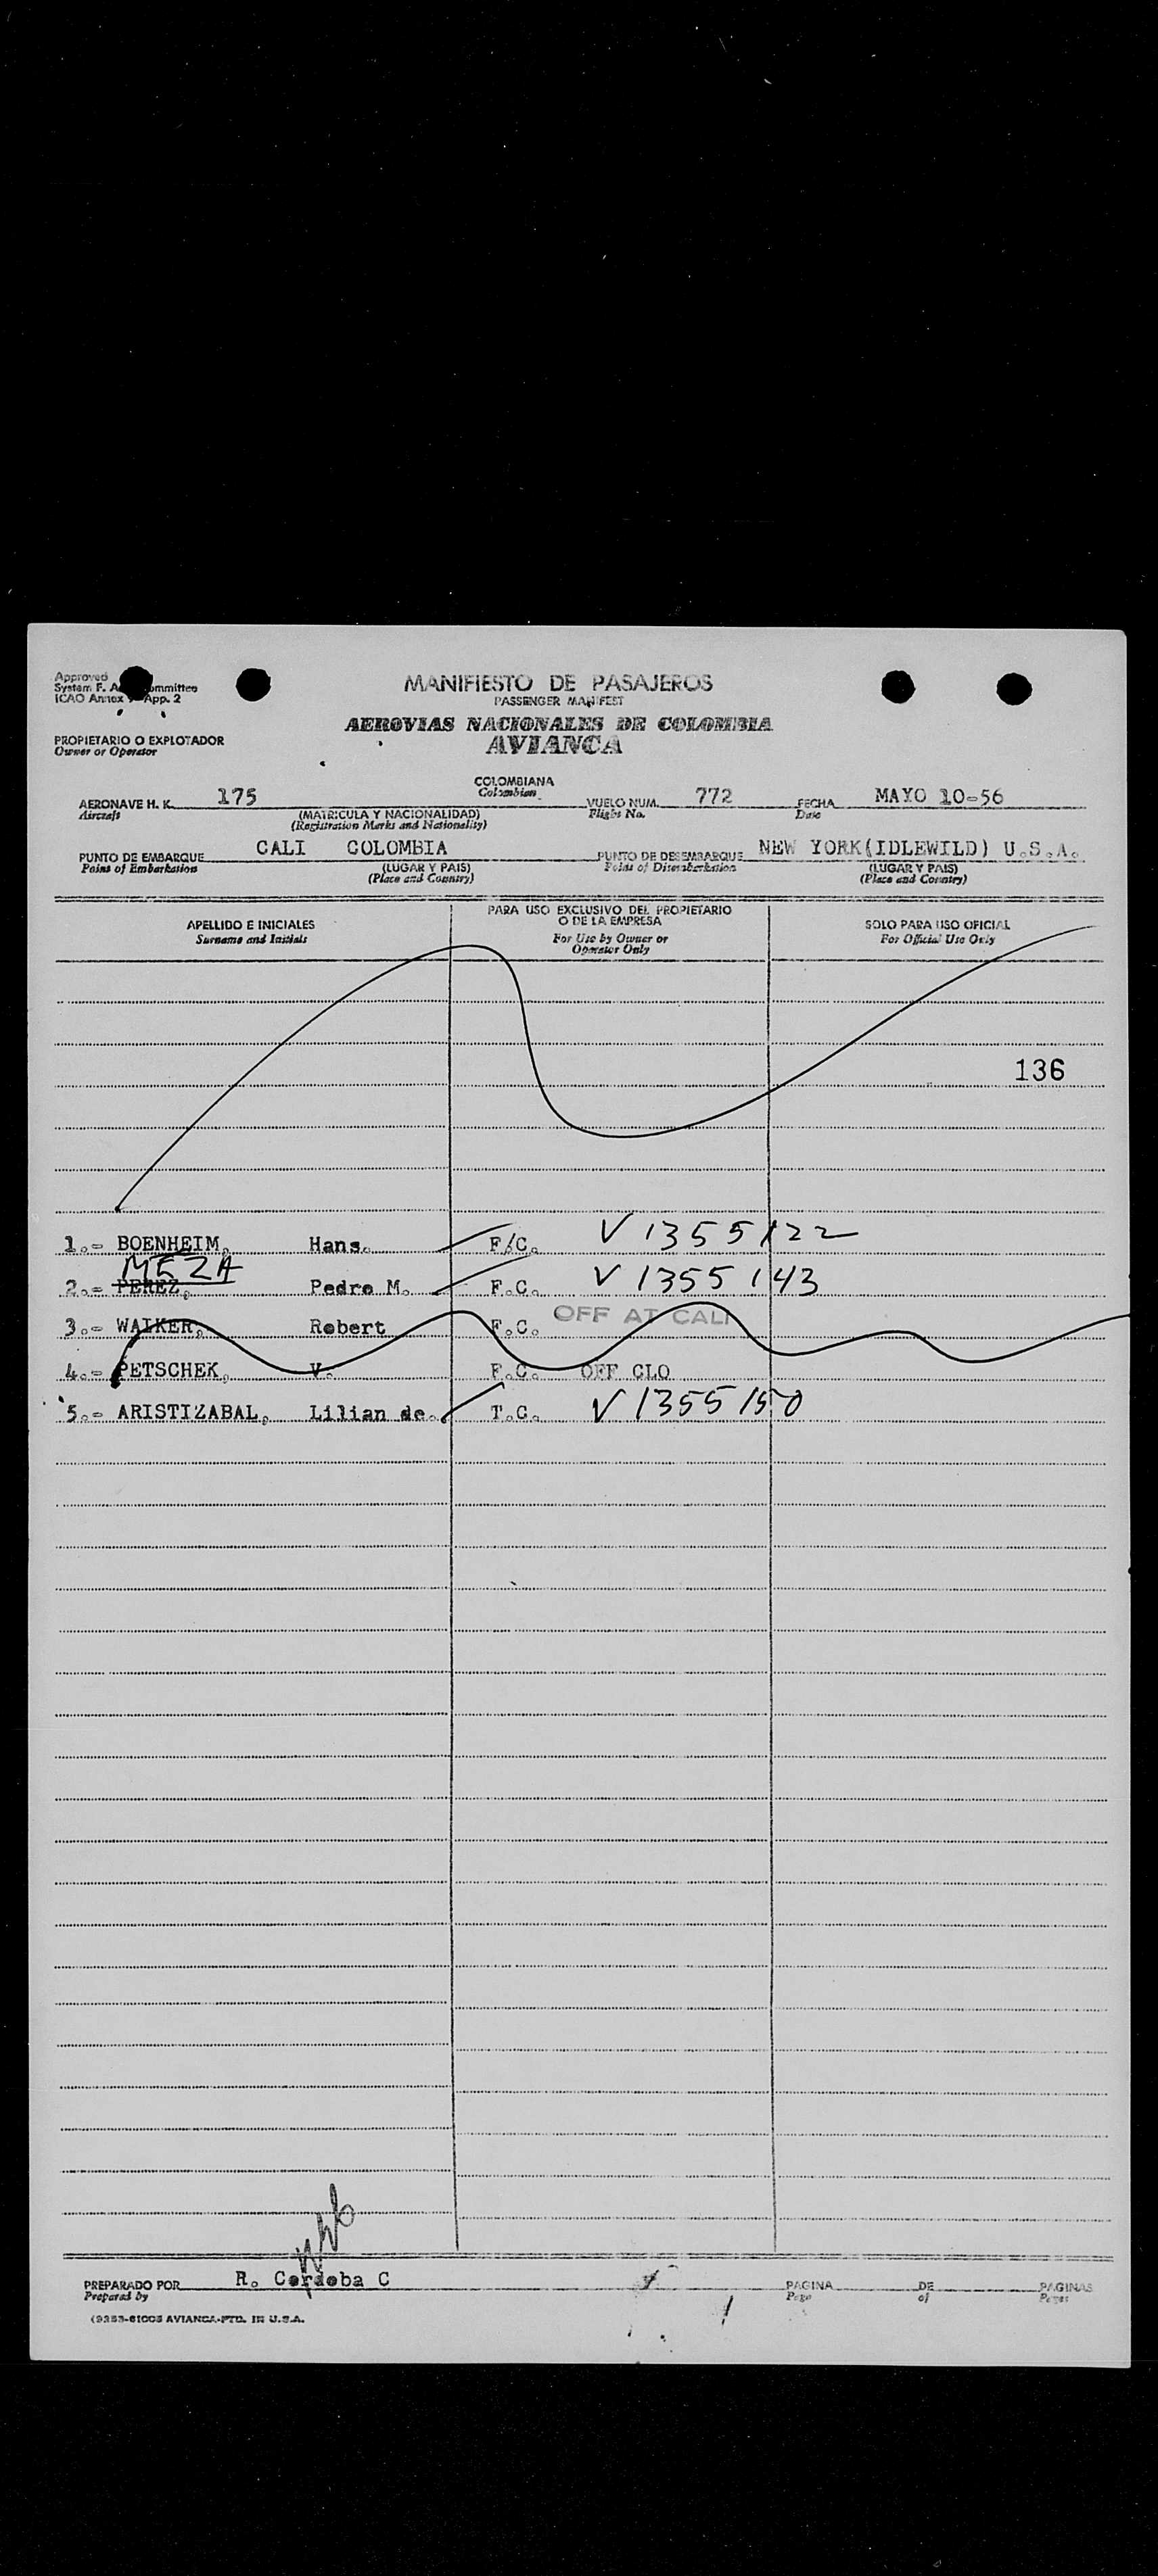 Approved
System F. A ommittee
ICAO Annex App. 2
MANIFIESTO DE PASAJEROS
PASSENGER MANIFEST
AEROVIAS NACIONALES DE COLOMBIA
AVIANCA
PROPIETARIO O EXPLOTADOR
Owner or Operator
COLOMBIANA
Colombian
AERONAVE H. K. 175 VUELO NUM. 772 FECHA MAYO 10-56
Aircraft (MATRICULA Y NACIONALIDAD) Flight No. Date
(Registration Marks and Nationality)
PUNTO DE EMBARQUE CALI COLOMBIA PUNTO DE DESEMBARQUE NEW YORK(IDLEWILD) U.S.A.
Point of Embarkation (LUGAR Y PAIS) Point of Disembarkation (LUGAR Y PAIS)
(Place and Country) (Place and Country)
APELLIDO E INICIALES PARA USO EXCLUSIVO DEL PROPIETARIO O DE LA EMPRESA SOLO PARA USO OFICIAL
Surname and Initials For Use by Owner or Operator Only For Official Use Only
136
1.- BOENHEIM, Hans. F/C. V 1355122
MEZA
2.- PEREZ, Pedro M. F.C. V 1355143
3.- WALKER, Robert F.C. OFF AT CALI
4.- PETSCHEK, V. F.C. OFF CLO
5.- ARISTIZABAL, Lilian de. T.C. V 1355150
PREPARADO POR R. Cordoba C PAGINA DE PAGINAS
Prepared by Page of Pages
(9353-61005 AVIANCA-PTD. IN U.S.A.